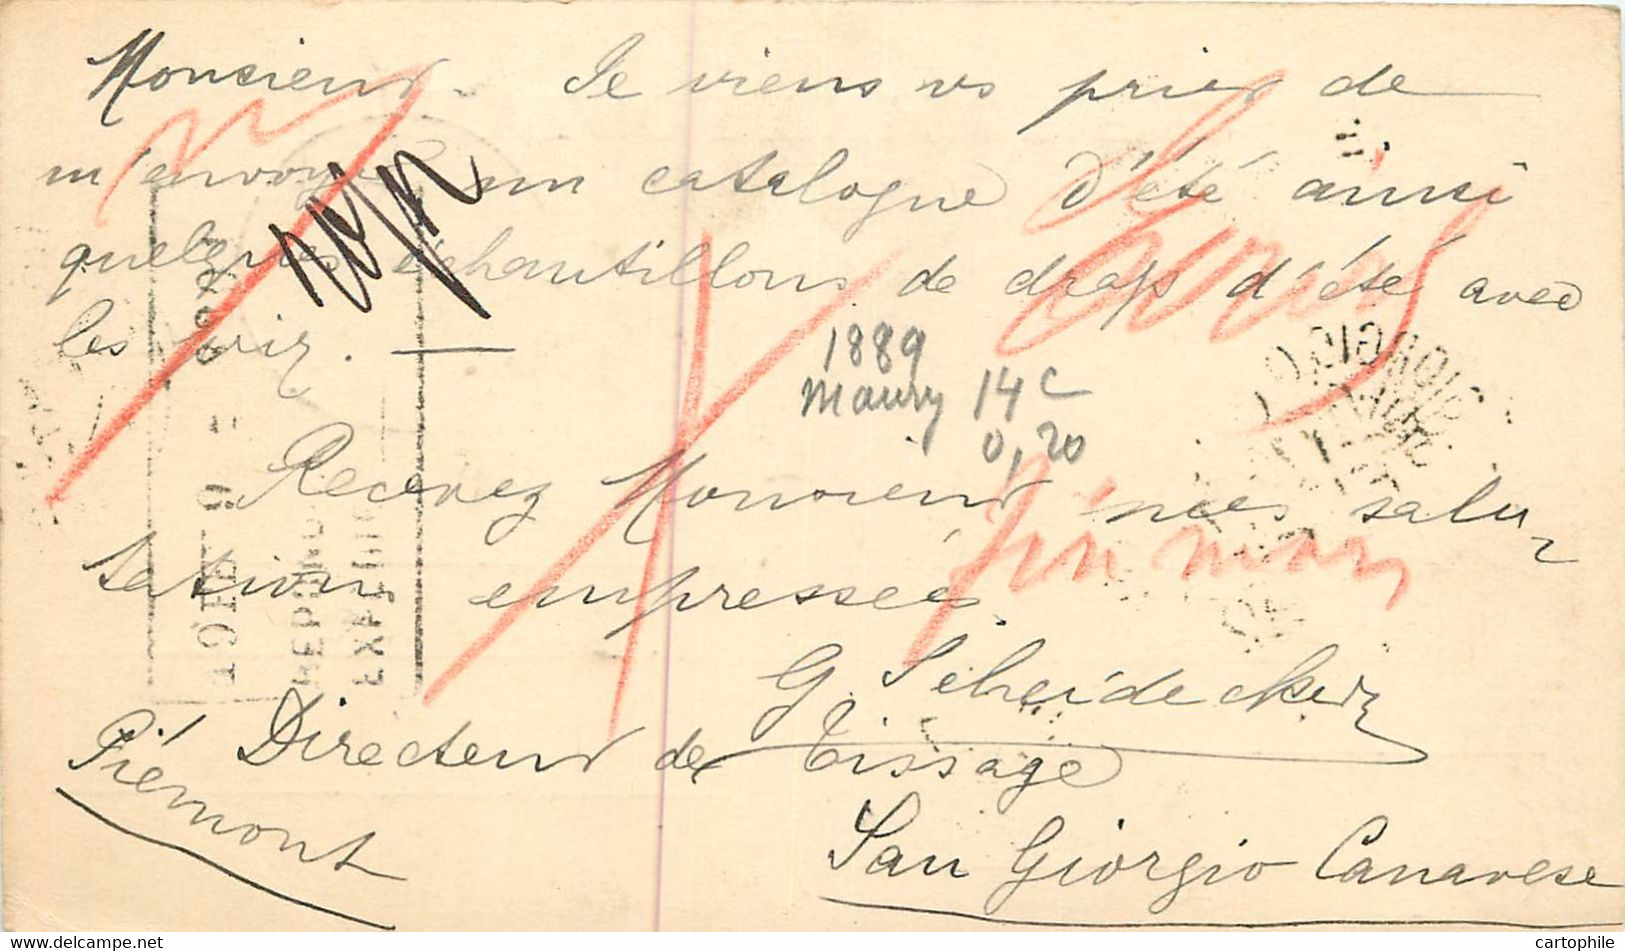 Monsieur. Je viens vs prier de
m'envoyer un catalogue d'été ainsi
quelques échantillons de draps d'été avec
les prix. —
1889
Maury 14 c
0,20
Recevez Monsieur mes salu-
tation empressées
fin mars
G Scheidecker
Directeur de Tissage
Piémont
San Giorgio Canavese
cartophile